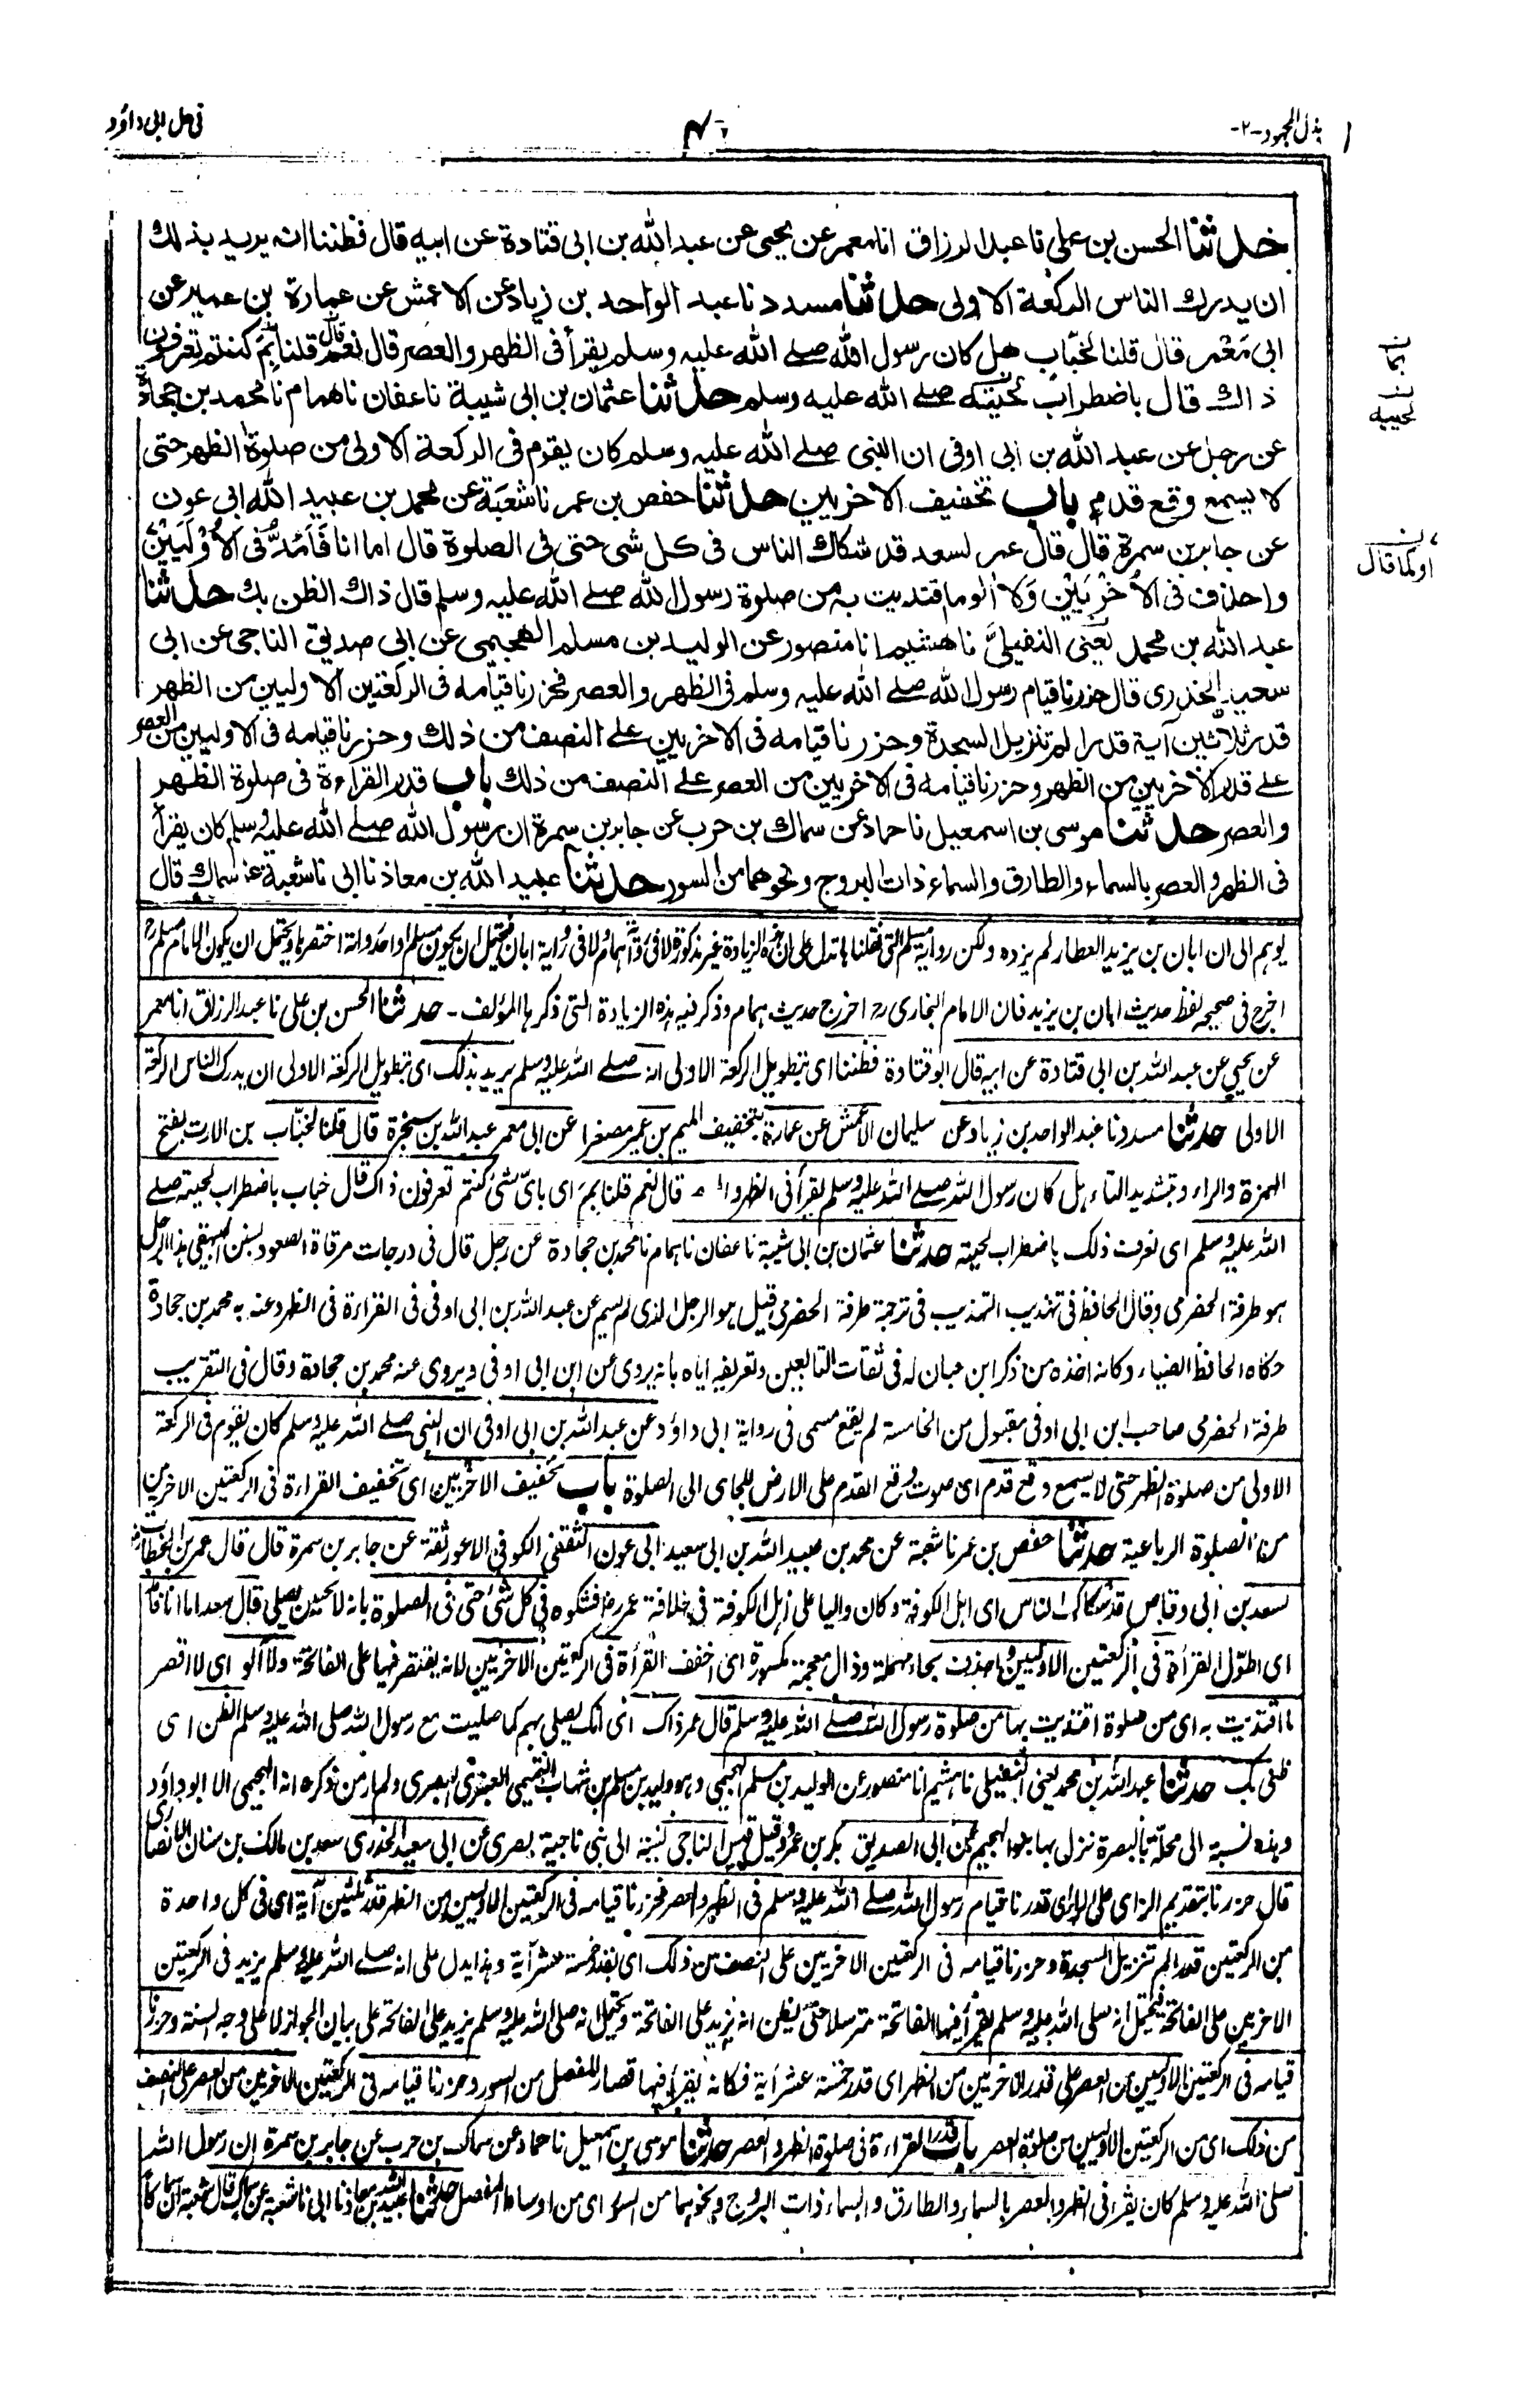 بذل المجهود -٢-
فى حل ابى داؤد
حدثنا الحسن بن على نا عبد الرزاق انا معمر عن يحيى عن عبد الله بن ابى قتادة عن ابيه قال فظننا انه يريد بذلك
ان يدرك الناس الركعة الاولى حدثنا مسدد نا عبد الواحد بن زياد عن الاعمش عن عمارة بن عمير عن
ابى مَعْمر قال قلنا لخبّاب هل كان رسول الله صلے الله عليه وسلم يقرأ فى الظهر والعصر قال نعم قلنا بِمَ كنتم تعرفون
ذاك قال باضطراب لحيته صلے الله عليه وسلم حدثنا عثمان بن ابى شيبة نا عفان نا همام نا محمد بن جحادة
عن رجل عن عبد الله بن ابى اوفى ان النبى صلے الله عليه وسلم كان يقوم فى الركعة الاولى من صلوة الظهر حتى
لا يسمع وقع قدم باب تخفيف الاخريين حدثنا حفص بن عمر نا شعبة عن محمد بن عبيد الله ابى عون
عن جابر بن سمرة قال قال عمر لسعد قد شكاك الناس فى كل شى حتى فى الصلوة قال اما انا فَاَمُدُّ فى الاُوْلَيَيْن
واحذف فى الاُخْرَيَيْن وَلا اٰلو ما اقتديت به من صلوة رسول الله صلے الله عليه وسلم قال ذاك الظن بك حدثنا
عبد الله بن محمد يعنى النفيلىَّ نا هشيم انا منصور عن الوليد بن مسلم الهجيمى عن ابى صديق الناجى عن ابى
سعيد الخدرى قال حزرنا قيام رسول الله صلے الله عليه وسلم فى الظهر والعصر فحزرنا قيامه فى الركعتين الاوليين من الظهر
قدر ثلاثين آية قدر الم تنزيل السجدة وحزرنا قيامه فى الاخريين على النصف من ذلك وحزرنا قيامه فى الاوليين من العصر
على قدر الاخريين من الظهر وحزرنا قيامه فى الاخريين من العصر على النصف من ذلك باب قدر القراءة فى صلوة الظهر
والعصر حدثنا موسى بن اسمعيل نا حماد عن سماك بن حرب عن جابر بن سمرة ان رسول الله صلے الله عليه وسلم كان يقرأ
فى الظهر والعصر بالسماء والطارق والسماء ذات البروج ونحوهما من السور حدثنا عبيد الله بن معاذ نا ابى نا شعبة عن سماك قال
بما
لحييه
اوكما قال
يوهم الى ان ابان بن يزيد العطار لم يزده ولكن رواية مسلم التى نقلناها تدل على ان هذه الزيادة غير مذكورة لا فى رواية همام ولا فى رواية ابان فيحتمل ان يكون مسلم او احد رواته اختصرها ويحتمل ان يكون الامام مسلم رح
اخرج فى صحيحه لفظ حديث ابان بن يزيد فان الامام البخارى رح اخرج حديث همام وذكر فيه هذه الزيادة التى ذكرها المؤلف - حدثنا الحسن بن على نا عبد الرزاق انا معمر
عن يحيي عن عبد الله بن ابى قتادة عن ابيه قال ابو قتادة فظننا اى بتطويل الركعة الاولى انه صلے الله عليه وسلم يريد بذلك اى بتطويل الركعة الاولى ان يدرك الناس الركعة
الاولى حدثنا مسدد نا عبد الواحد بن زياد عن سليمان الاعمش عن عمارة بتخفيف الميم بن عمير مصغرا عن ابى معمر عبد الله بن سخبرة قال قلنا لخبّاب بن الارت بفتح
الهمزة والراء وتشديد التاء هل كان رسول الله صلے الله عليه وسلم يقرأ فى الظهر و قال نعم قلنا بِمَ اى باىّ شئ كنتم تعرفون ذاك قال خباب باضطراب لحيته صلے
الله عليه وسلم اى نعرف ذلك باضطراب لحيته حدثنا عثمان بن ابى شيبة نا عفان نا همام نا محمد بن جحادة عن رجل قال فى درجات مرقاة الصعود بسنن البيهقى هذا الرجل
هو طرفة الحضرمى وقال الحافظ فى تهذيب التهذيب فى ترجمة طرفة الحضرمى قيل هو الرجل الذى لم يسم عن عبد الله بن ابى اوفى فى القراءة فى الظهر وعنه به محمد بن جحادة
حكاه الحافظ الضياء وكانه اخذه من ذكر ابن حبان له فى ثقات التابعين وتعريفه اياه بانه يروى عن ابن ابى اوفى ويروى عنه محمد بن جحادة وقال فى التقريب
طرفة الحضرمى صاحب ابن ابى اوفى مقبول من الخامسة لم يقع مسمى فى رواية ابى داؤد عن عبد الله بن ابى اوفى ان النبى صلے الله عليه وسلم كان يقوم فى الركعة
الاولى من صلوة الظهر حتى لا يسمع وقع قدم اى صوت وقع القدم على الارض للجاى الى الصلوة باب تخفيف الاخريين اى تخفيف القراءة فى الركعتين الاخريين
من الصلوة الرباعية حدثنا حفص بن عمر نا شعبة عن محمد بن عبيد الله بن ابى سعيد ابى عون الثقفى الكوفى الاعور ثقة عن جابر بن سمرة قال قال عمر بن الخطاب
لسعد بن ابى وقاص قد شكاك الناس اى اهل الكوفة وكان واليا على اهل الكوفة فى خلافة عمر رض فشكوه فى كل شئ حتى فى الصلوة بانه لا يحسن يصلى قال سعد اما انا فامد
اى اطوّل القرأة فى الركعتين الاوليين واحذف بحاء مهملة وذال معجمة مكسورة اى اخفف القرأة فى الركعتين الاخريين لانه يقتصر فيها على الفاتحة ولا آلو اى لا اقصر
ما اقتديت به اى من صلوة اقتديت بها من صلوة رسول الله صلے الله عليه وسلم قال عمر ذاك اى انك تصلى بهم كما صليت مع رسول الله صلى الله عليه وسلم الظن اى
ظنى بك حدثنا عبد الله بن محمد يعنى النفيلى نا هشيم انا منصور عن الوليد بن مسلم الهجيمى وهو وليد بن مسلم بن شهاب التميمى العنبرى البصرى ولم ار من ذكره انه الهجيمى الا ابو داؤد
وهذه نسبة الى محلة بالبصرة نزل بها بنو الهجيم عن ابى الصديق بكر بن عمرو وقيل قيس الناجى نسبة الى بنى ناجية بصرى عن ابى سعيد الخدرى سعد بن مالك بن سنان الانصارى
قال حزرنا بتقديم الزاى على الراء اى قدرنا قيام رسول الله صلے الله عليه وسلم فى الظهر والعصر فحزرنا قيامه فى الركعتين الاوليين من الظهر قدر ثلثين آية اى فى كل واحدة
من الركعتين قدر الم تنزيل السجدة وحزرنا قيامه فى الركعتين الاخريين على النصف من ذلك اى بقدر خمسة عشر آية وهذا يدل على انه صلے الله عليه وسلم يزيد فى الركعتين
الاخريين على الفاتحة فيحتمل انه صلى الله عليه وسلم يقرأ فيها الفاتحة مترسلا حتى يظن انه يزيد على الفاتحة ويحتمل انه صلى الله عليه وسلم يزيد على الفاتحة على بيان الجواز لا على وجه السنة وحزرنا
قيامه فى الركعتين الاوليين من العصر على قدر الاخريين من الظهر اى قدر خمسة عشر آية فكانه يقرأ فيها قصار المفصل من السور وحزرنا قيامه فى الركعتين الاخريين من العصر على النصف
من ذلك اى من الركعتين الاوليين من صلوة العصر باب قدر القراءة فى صلوة الظهر والعصر حدثنا موسى بن اسمعيل نا حماد عن سماك بن حرب عن جابر بن سمرة ان رسول الله
صلى الله عليه وسلم كان يقرأ فى الظهر والعصر بالسماء والطارق والسماء ذات البروج ونحوهما من السور اى من اوساط المفصل حدثنا عبيد الله بن معاذ نا ابى نا شعبة عن سماك قال شعبة